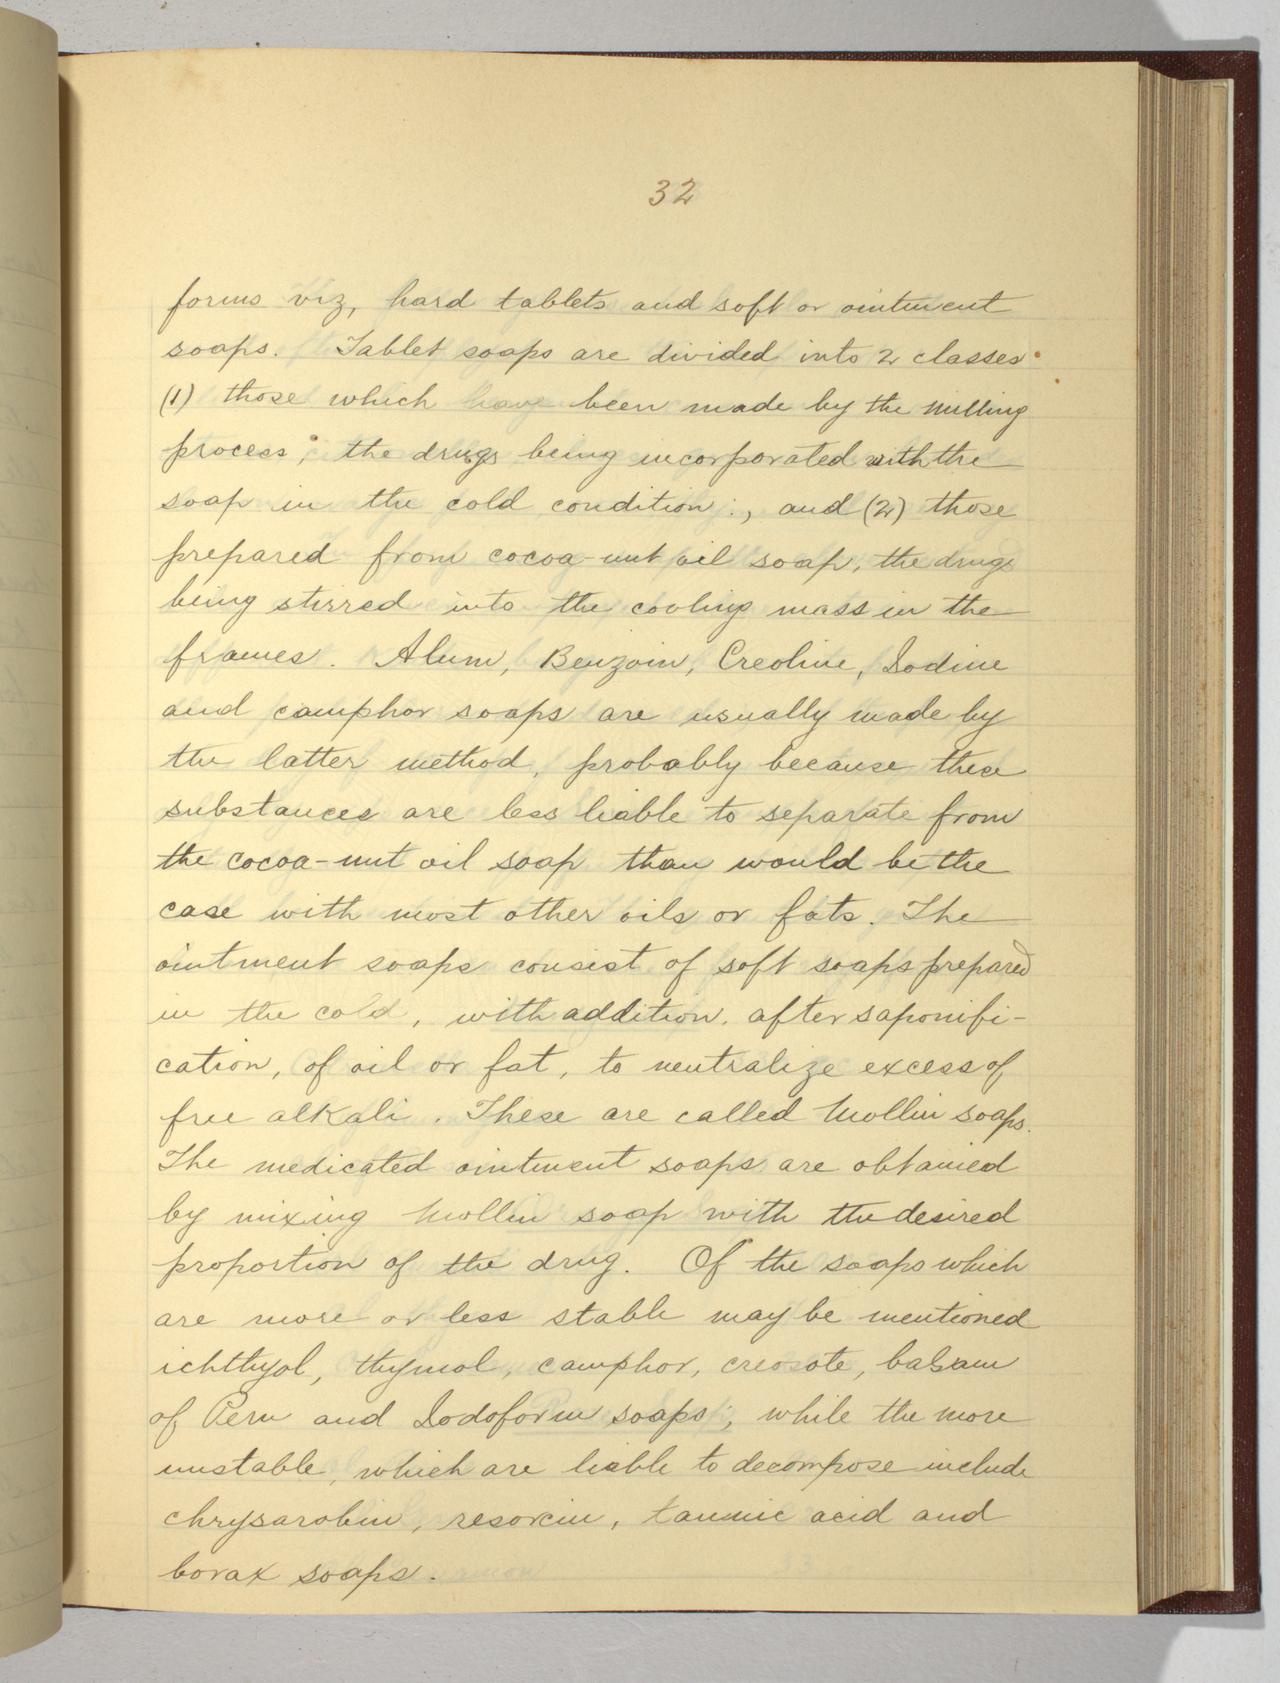 32
forms viz, hard tablets and soft or ointment
soaps. Tablet soaps are divided into 2 classes
(1) those which have been made by the milling
process; the drugs being incorporated with the
soap in the cold condition:, and (2) those
prepared from cocoa-nut oil soap, the drugs
being stirred into the cooling mass in the
frames. Alum, Benzoin, Creoline, Iodine
and camphor soaps are usually made by
the latter method, probably because these
substances are less liable to separate from
the cocoa-nut oil soap than would be the
case with most other oils or fats. The
ointment soaps consist of soft soaps prepared
in the cold, with addition, after saponifi-
cation, of oil or fat, to neutralize excess of
free alkali. These are called Mollin soaps.
The medicated ointment soaps are obtained
by mixing Mollin soap with the desired
proportion of the drug. Of the soaps which
are more or less stable may be mentioned
ichthyol, thymol, camphor, creosote, balsam
of Peru and Iodoform soaps; while the more
unstable, which are liable to decompose include
chrysarobin, resorcin, tannic acid and
borax soaps.